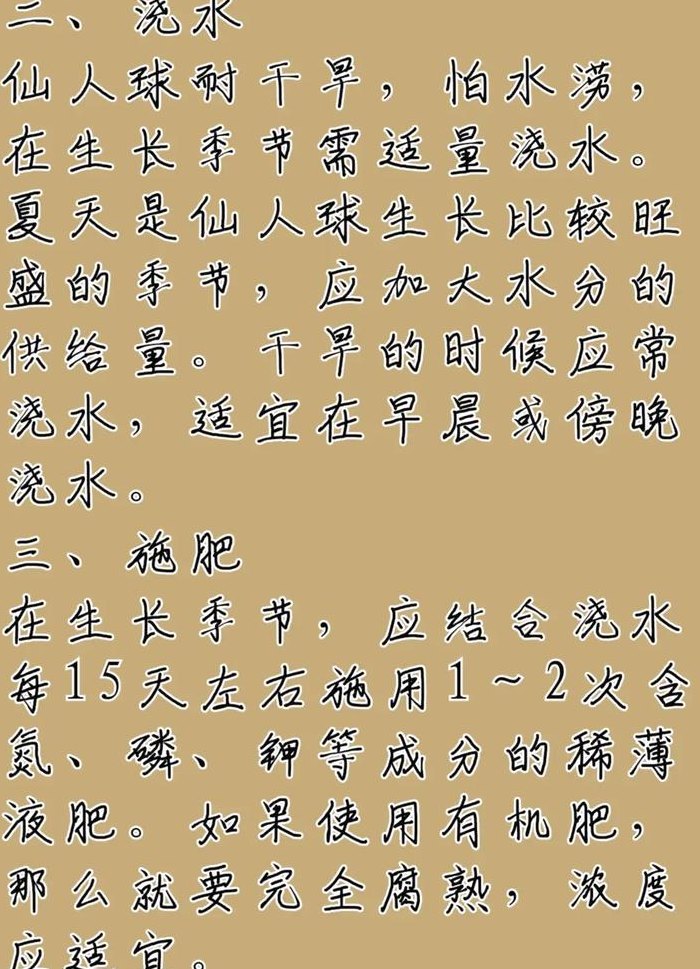 二、浇水
仙人球耐干旱，怕水涝，
在生长季节需适量浇水。
夏天是仙人球生长比较旺
盛的季节，应加大水分的
供给量。干旱的时候应常
浇水，适宜在早晨或傍晚
浇水。
三、施肥
在生长季节，应结合浇水
每15天左右施用1～2次含
氮、磷、钾等成分的稀薄
液肥。如果使用有机肥，
那么就要完全腐熟，浓度
应适宜。